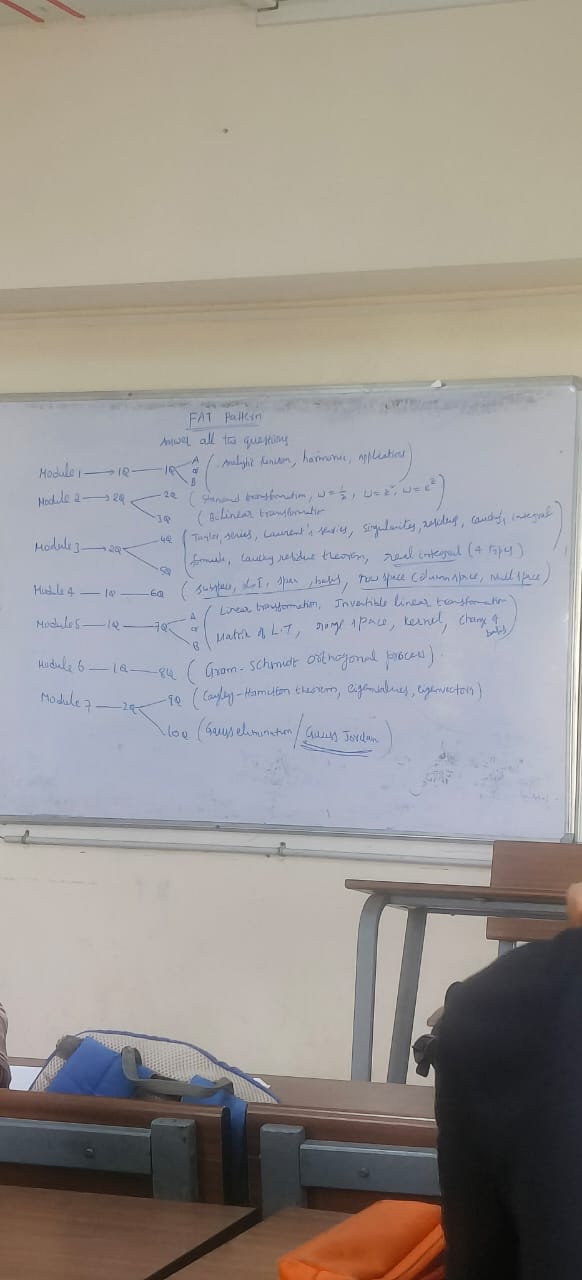 FAT Pattern
Answer all the questions
Module 1 → 1Q — 1Q A or B (Analytic function, harmonic, applications)
Module 2 → 2Q 2Q (Standard transformation, w=1/z, w=z², w=e^z)
3Q (Bilinear transformation
Module 3 → 2Q 4Q (Taylor, series, Laurent's, series, singularities, residue, cauchy, integral
5Q formula, Cauchy residue theorem, real integral (4 types)
Module 4 — 1Q — 6Q (Subspace, span, basis, row space column space, null space)
Module 5 — 1Q — 7Q A or B (Linear transformation, Invertible linear transformation
Matrix of L.T, range space, kernel, change of basis)
Module 6 — 1Q — 8Q (Gram-Schmidt orthogonal process)
Module 7 — 2Q 9Q (Cayley-Hamilton theorem, eigenvalues, eigenvectors)
10Q (Gauss elimination/Gauss Jordan)